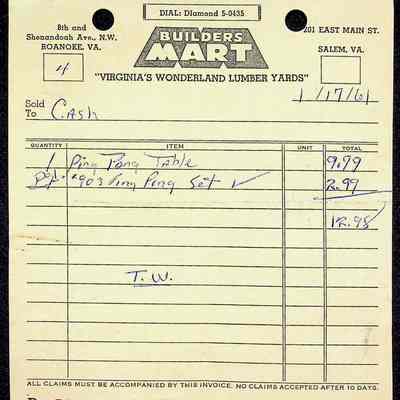 DIAL: Diamond 5-0435
8th and
Shenandoah Ave., N.W.
ROANOKE, VA.
BUILDERS
MART
201 EAST MAIN ST.
SALEM, VA.
4
"VIRGINIA'S WONDERLAND LUMBER YARDS"
1/17/61
Sold
To Cash
QUANTITY ITEM UNIT TOTAL
1 Ping Pong Table 9.99
903 Ping Pong Set ✓ 2.99
12.98
T.W.
ALL CLAIMS MUST BE ACCOMPANIED BY THIS INVOICE. NO CLAIMS ACCEPTED AFTER 10 DAYS.